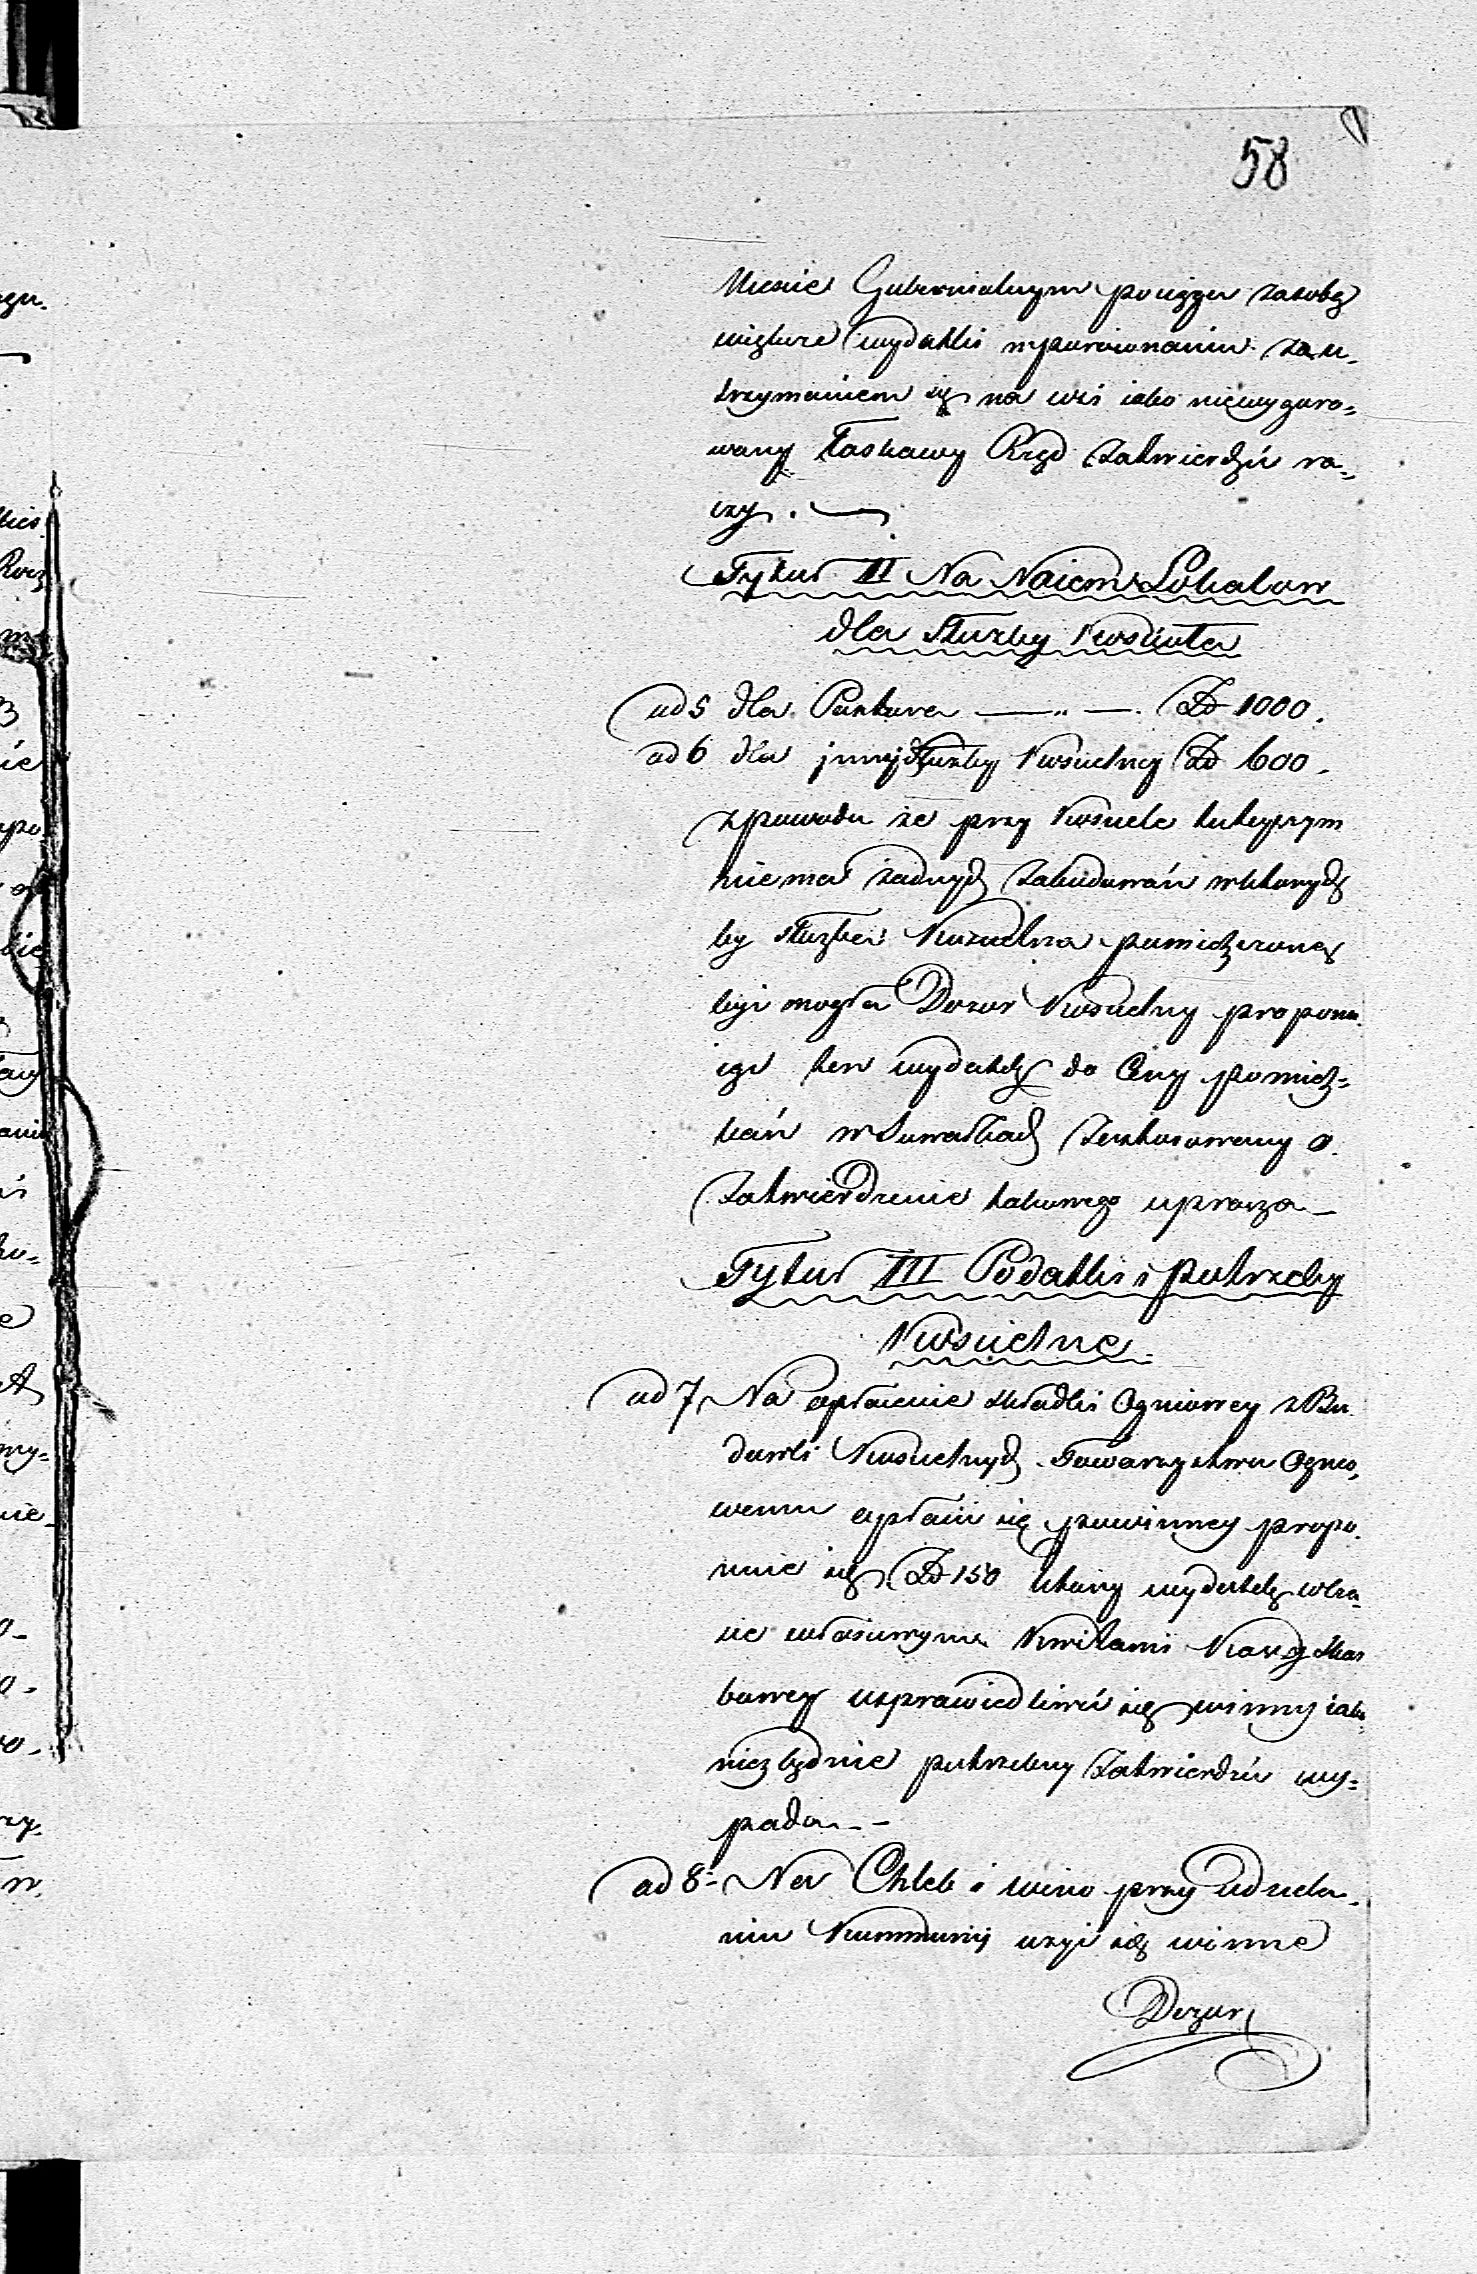 58
Miescie Gubernialnym pociąga zasobą
większe wydatki wporównaniu za u„
trzymaniem się na wsi iako niewygoro„
wany Łaskawy Rząd zatwierdzić ra„
czy. —
Tytuł II Na Naiem Lokalow
dla Służby Kościoła
ad 5 dla Pastora — „ — Zł 1000.
ad 6 dla innej Służby Kościelney Zł 600.
zpowodu że przy Kościele tuteyszym
niema żadnych zabudowań wktorych
by służba Kościelna pomieszczoną
byi mogła Dozor Kościelny propono„
iąc ten wydatek do Ceny pomiesz„
kań w Suwałkach zastosowany o
zatwierdzenie takowego uprasza —
Tytuł III Podatki i potrzeby
Kościelne
ad 7 Na opłacenie składki Ogniowey z Bu
dowli Kościelnych Towarzystwu Ognio„
wemu opłacić się powinney propo„
nuie się Zł 150 ktory wydatek
właściwymi Kwitami Kassy Skar
bowey usprawiedliwić się winny iako
niezbędnie potrzebny zatwierdzić wy„
pada — –
ad 8 – Na Chleb i wino przy udziela„
niu Kommunij użyi się winne
Dozor